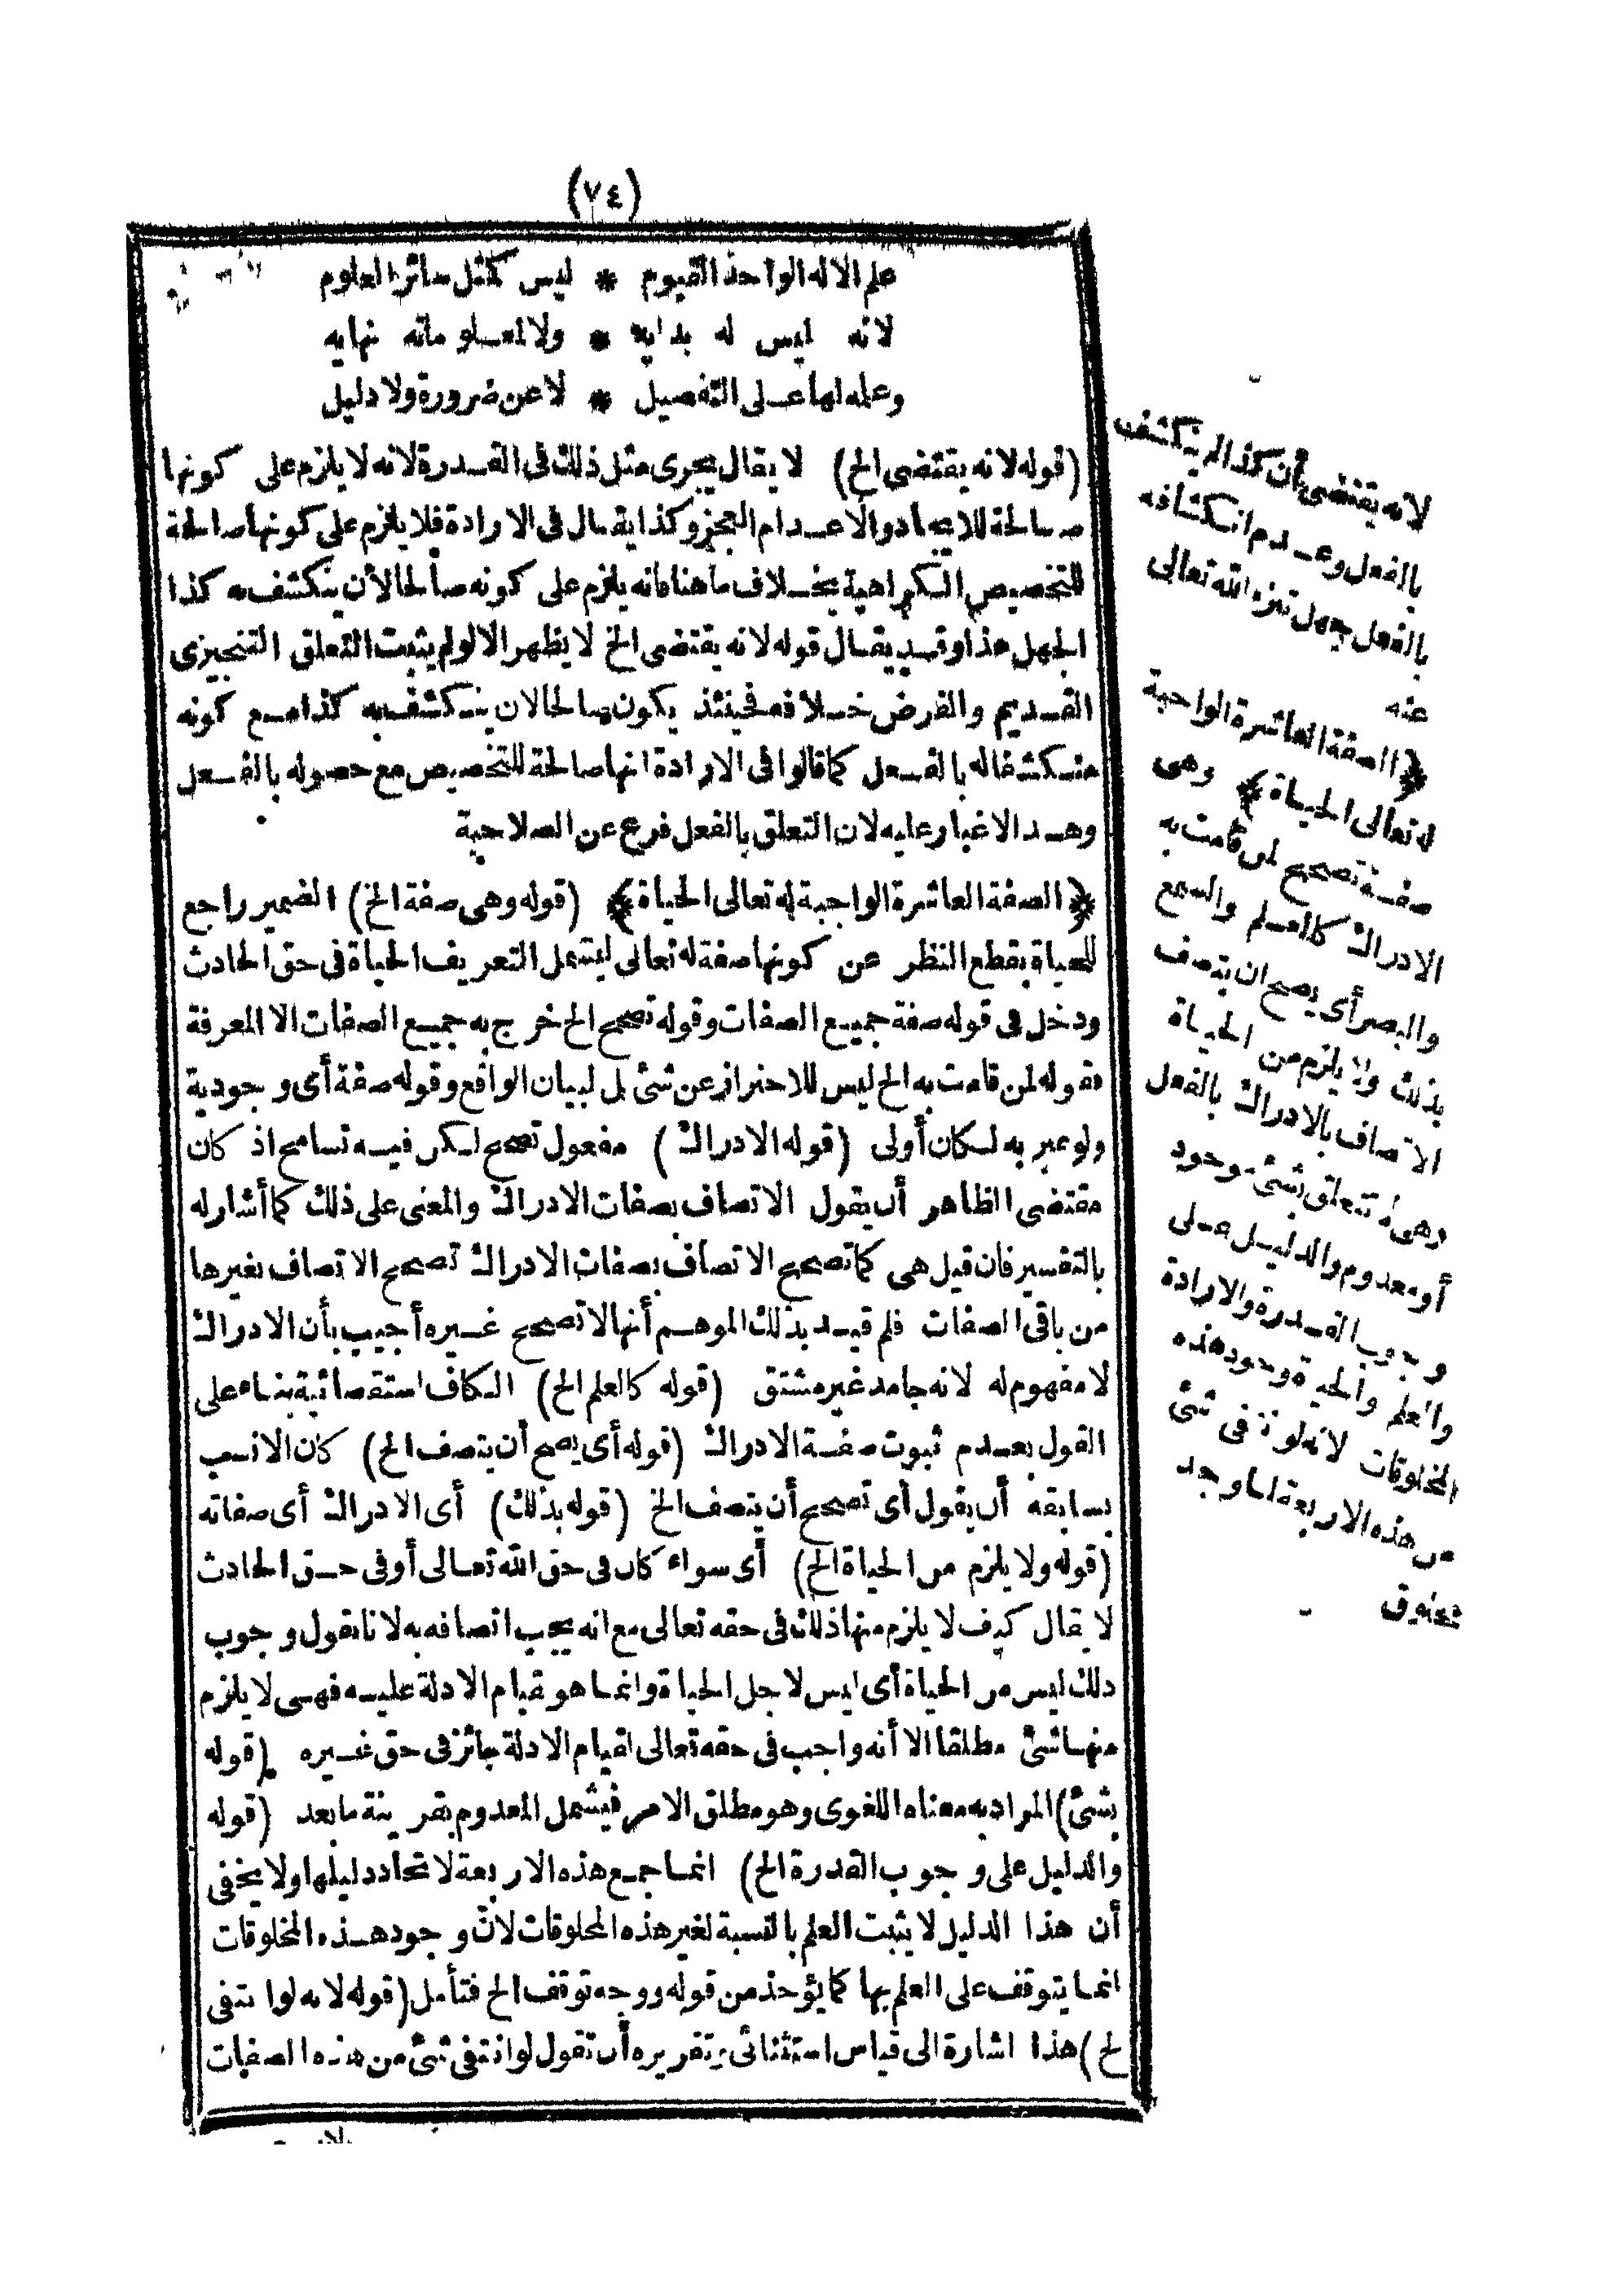 (٧٤)
علم الاله الواحد القيوم * ليس كمثل سائر العلوم
لانه ليس له بدايه * ولا لمعلوماته نهايه
وعلمه لها على التفصيل * لا عن ضرورة ولا دليل
(قوله لانه يقتضى الخ) لا يقال يجرى مثل ذلك فى القدرة لانه لا يلزم على كونها
صالحة للايجاد والاعدام العجز وكذا يقال فى الارادة فلا يلزم على كونها صالحة
للتخصيص الكراهية بخلاف ما هنا فانه يلزم على كونه صالحا لأن ينكشف به كذا
الجهل هذا وقد يقال قوله لانه يقتضى الخ لا يظهر الا لو لم يثبت التعلق التنجيزى
القديم والفرض خلافه فحينئذ يكون صالحا لان ينكشف به كذا مع كونه
منكشفا له بالفعل كما قالوا فى الارادة انها صالحة للتخصيص مع حصوله بالفعل
وهذا لا غبار عليه لان التعلق بالفعل فرع عن الصلاحية
﴿الصفة العاشرة الواجبة له تعالى الحياة﴾ (قوله وهى صفة الخ) الضمير راجع
للحياة بقطع النظر عن كونها صفة له تعالى ليشمل التعريف الحياة فى حق الحادث
ودخل فى قوله صفة جميع الصفات وقوله تصحح الخ خرج به جميع الصفات الا المعرفة
فقوله لمن قامت به الخ ليس للاحتراز عن شئ بل لبيان الواقع وقوله صفة أى وجودية
ولو عبر به لكان أولى (قوله الادراك) مفعول تصحح لكن فيه تسامح اذ كان
مقتضى الظاهر أن يقول الاتصاف بصفات الادراك والمعنى على ذلك كما أشار له
بالتفسير فان قيل هى كما تصحح الاتصاف بصفات الادراك تصحح الاتصاف بغيرها
من باقى الصفات فلم قيد بذلك الموهم أنها لا تصحح غيره أجيب بأن الادراك
لا مفهوم له لانه جامد غير مشتق (قوله كالعلم الخ) الكاف استقصائية بناء على
القول بعدم ثبوت صفة الادراك (قوله أى يصح أن يتصف الخ) كان الانسب
بسابقه أن يقول أى تصحح أن يتصف الخ (قوله بذلك) أى الادراك أى صفاته
(قوله ولا يلزم من الحياة الخ) أى سواء كان فى حق الله تعالى أو فى حق الحادث
لا يقال كيف لا يلزم منها ذلك فى حقه تعالى مع انه يجب اتصافه به لانا نقول وجوب
ذلك ليس من الحياة أى ليس لاجل الحياة وانما هو لقيام الادلة عليه فهى لا يلزم
منها شئ مطلقا الا أنه واجب فى حقه تعالى لقيام الادلة جائز فى حق غيره (قوله
بشئ) المراد به معناه اللغوى وهو مطلق الامر فيشمل المعدوم بقرينة ما بعد (قوله
والدليل على وجوب القدرة الخ) انما جمع هذه الاربعة لاتحاد دليلها ولا يخفى
أن هذا الدليل لا يثبت العلم بالنسبة لغير هذه المخلوقات لان وجود هذه المخلوقات
انما يتوقف على العلم بها كما يؤخذ من قوله ووجه توقف الخ فتأمل (قوله لانه لو انتفى
لخ) هذا اشارة الى قياس استثنائى وتقريره أن تقول لو انتفى شئ من هذه الصفات
لانه يقتضى أن كذا لم ينكشف
بالفعل وعدم انكشافه
بالفعل جهل تنزه الله تعالى
عنه
﴿الصفة العاشرة الواجبة
له تعالى الحياة﴾ وهى
صفة تصحح لمن قامت به
الادراك كالعلم والسمع
والبصر أى يصح ان يتصف
بذلك ولا يلزم من الحياة
الاتصاف بالادراك بالفعل
وهى لا تتعلق بشئ موجود
أو معدوم والدليل على
وجوب القدرة والارادة
والعلم والحياة وجود هذه
المخلوقات لانه لو انتفى شئ
من هذه الاربعة لما وجد
مخلوق